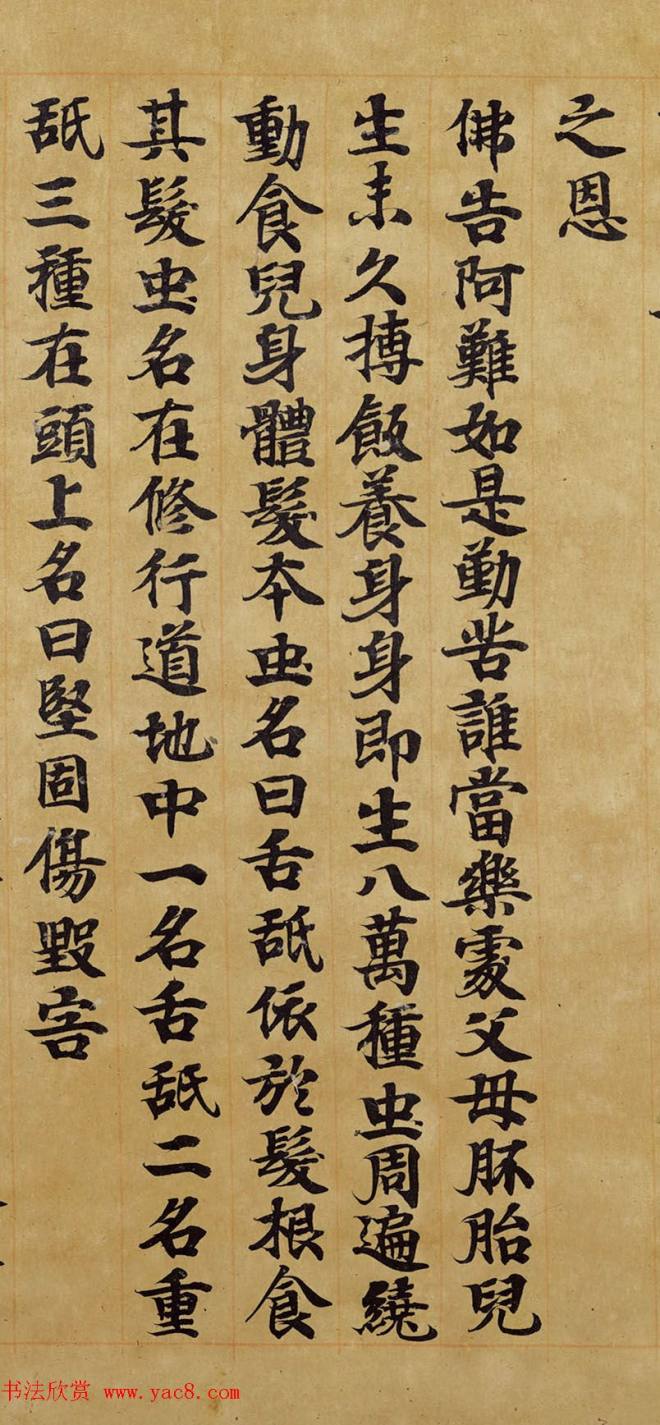 之恩
佛告阿難如是勤苦誰當樂處父母胚胎兒
生未久摶飯養身身即生八萬種虫周遍繞
動食兒身體髮本虫名曰舌舐依於髮根食
其髮虫名在修行道地中一名舌舐二名重
舐三種在頭上名曰堅固傷毀害
书法欣赏 www.yac8.com